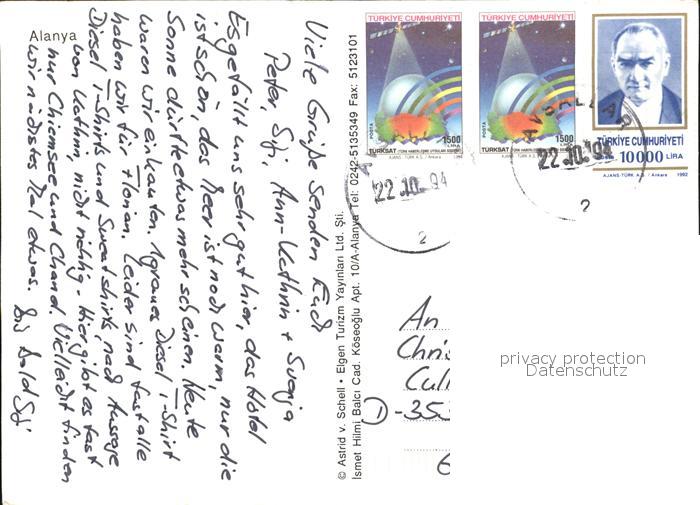 Alanya
Viele Grüße senden Euch
Peter, Ann-Kathrin + Svenja
Es gefällt uns sehr gut hier, das Hotel
ist schön, das Meer ist noch warm, nur die
Sonne dürfte etwas mehr scheinen. Heute
waren wir einkaufen. 1 graues Diesel T-Shirt
haben wir für Florian. Leider sind fast alle
Diesel T-Shirts und Sweatshirts, nach Aussage
von Kathrin, nicht richtig. Hier gibt es fast
nur Chiemsee und Chanel. Vielleicht finden
wir nächstes Mal etwas. Bis bald
© Astrid v. Schell • Elgen Turizm Yayınları Ltd. Şti.
Ismet Hilmi Balcı Cad. Köseoğlu Apt. 10/A-Alanya Tel: 0242-5135349 Fax: 5123101
TÜRKİYE CUMHURİYETİ
POSTA
1500
LİRA
TÜRKSAT
AJANS-TÜRK A.Ş. / Ankara
TÜRKİYE CUMHURİYETİ
POSTA
1500
LİRA
TÜRKSAT
AJANS-TÜRK A.Ş. / Ankara
TÜRKİYE CUMHURİYETİ
10000 LİRA
AJANS-TÜRK A.Ş. / Ankara 1992
22.10.94
2
AVSALLAR
22.10.94
2
An
Chris
D-353
privacy protection
Datenschutz